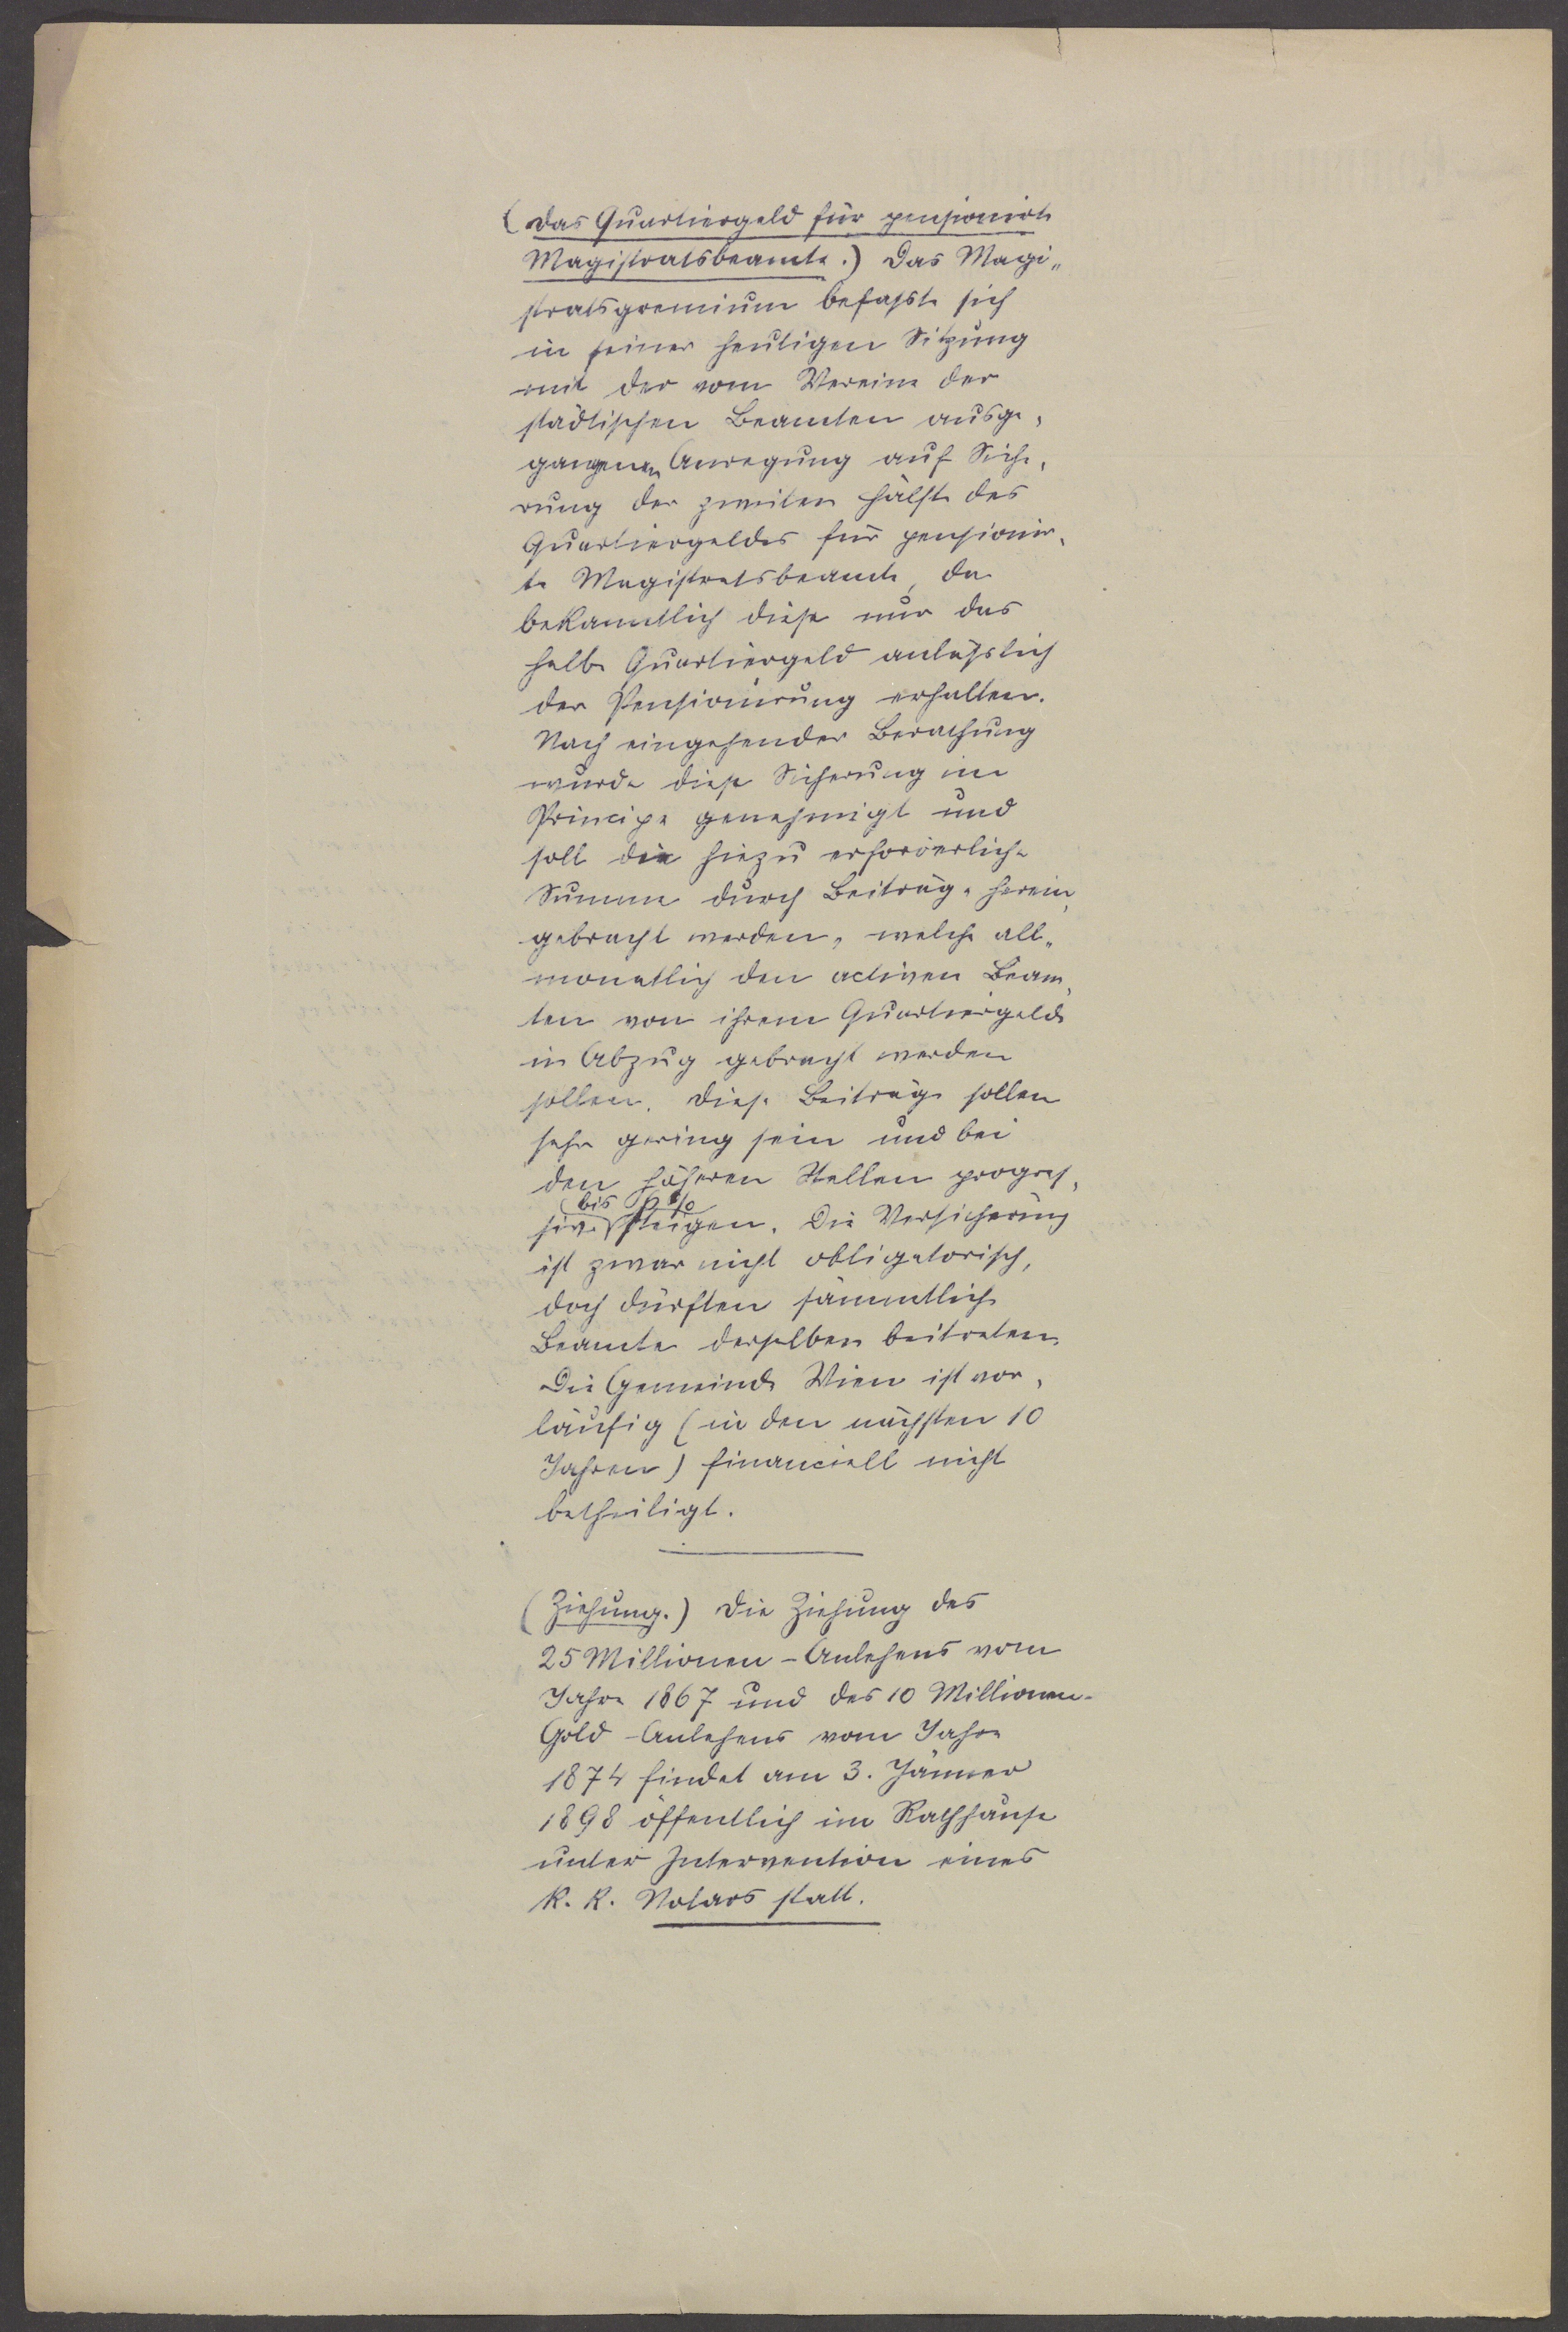 (Das Quartiergeld für pensionirte
Magistratsbeamte.) Das Magi„
stratsgremium befaßte sich
in seiner heutigen Sitzung
mit der vom Vereine der
städtischen Beamten ausge„
gangenen Anregung auf Siche„
rung der zweiten Hälfte des
Quartiergeldes für pensionir„
te Magistratsbeamte, da
bekanntlich diese nur das
halbe Quartiergeld anläßlich
der Pensionirung erhalten.
Nach eingehender Berathung
wurde diese Sicherung im
Principe genehmigt und
soll die hiezu erforderliche
Summe durch Beiträge herein„
gebracht werden, welche all„
monatlich den activen Beam„
ten von ihrem Quartiergelde
in Abzug gebracht werden
sollen. Diese Beiträge sollen
sehr gering sein und bei
den höheren Stellen progres„
bis %
sive steigen. Die Versicherung
ist zwar nicht obligatorisch,
doch dürften sämmtliche
Beamte derselben beitreten.
Die Gemeinde Wien ist vor„
läufig (in den nächsten 10
Jahren) financiell nicht
betheiligt.
(Ziehung.) Die Ziehung des
25 Millionen-Anlehens vom
Jahre 1867 und des 10 Millionen-
Gold-Anlehens vom Jahre
1874 findet am 3. Jänner
1898 öffentlich im Rathhause
unter Intervention eines
k. k. Notars statt.